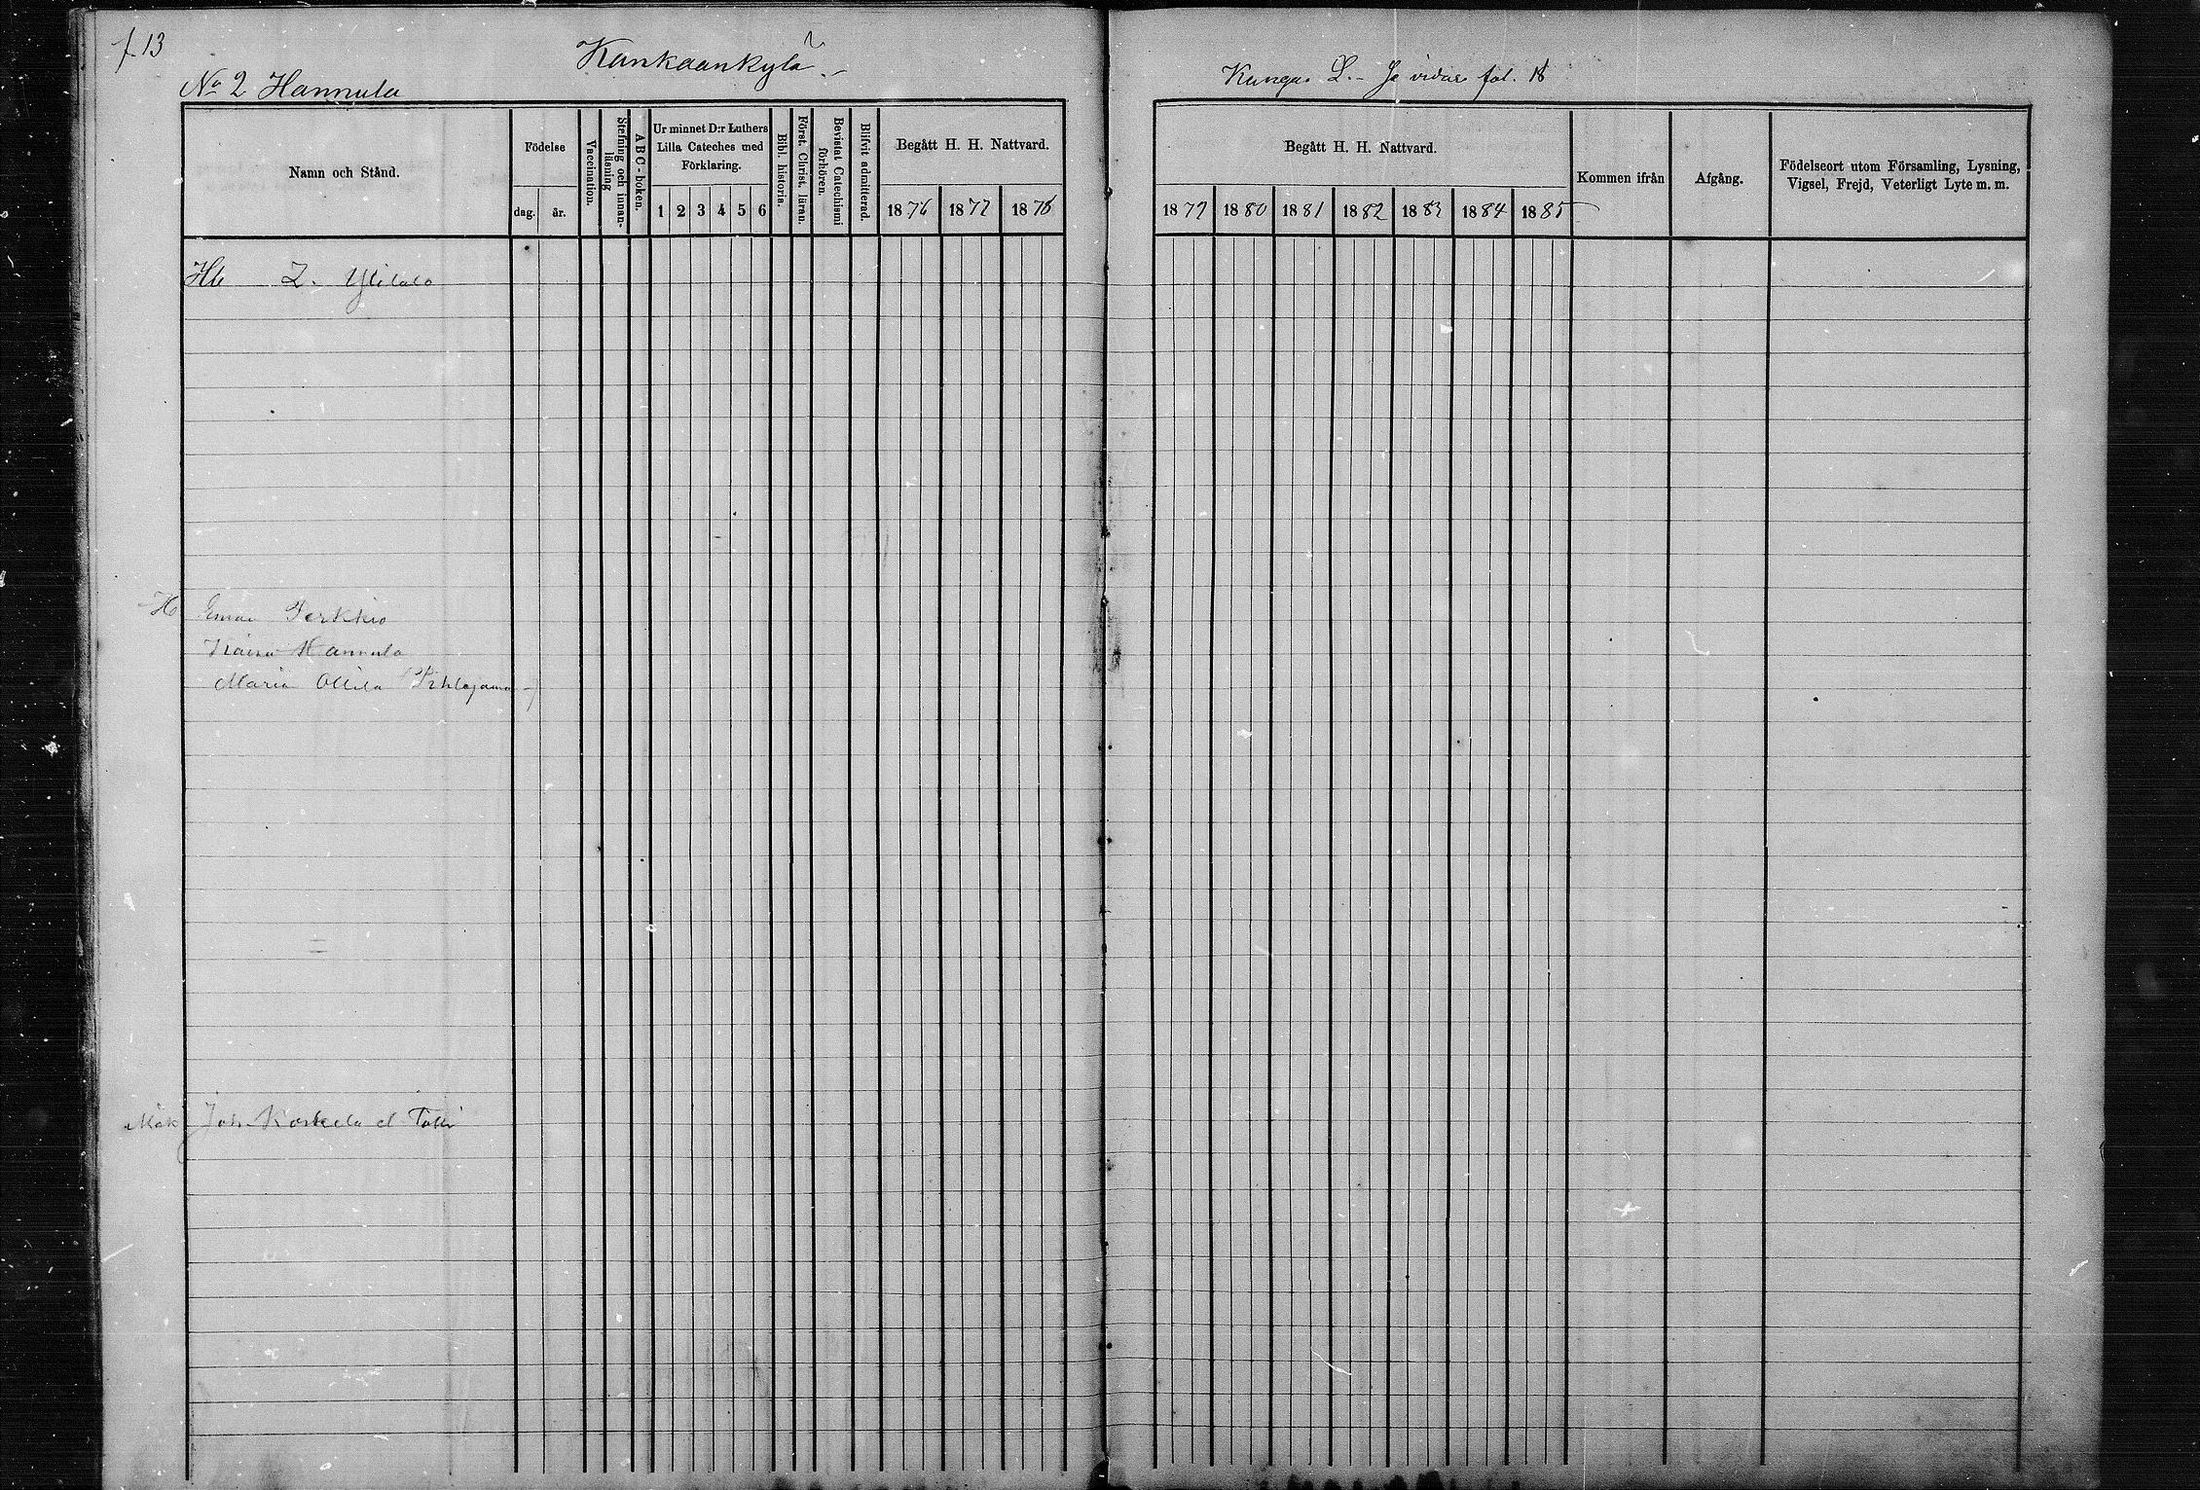 f. 13
Kankaankylä
No 2 Hannula
Namn och Stånd.
Födelse
dag. år.
Vaccination.
Stafning och innan-läsning
ABC-boken.
Ur minnet D:r Luthers
Lilla Cateches med
Förklaring.
1 2 3 4 5 6
Bibl. historia.
Först. Christ. läran.
Bevistat Catechismi förhören.
Blifvit admitterad.
Begått H. H. Nattvard.
1876 1877 1878
Z. Ylitalo
H
Perkkiö
Hannula
Maria Ollila
Joh. Korkela el.
Kangas L. - Se vidare fol. 18
Begått H. H. Nattvard.
1879 1880 1881 1882 1883 1884 1885
Kommen ifrån
Afgång.
Födelseort utom Församling, Lysning,
Vigsel, Frejd, Veterligt Lyte m. m.